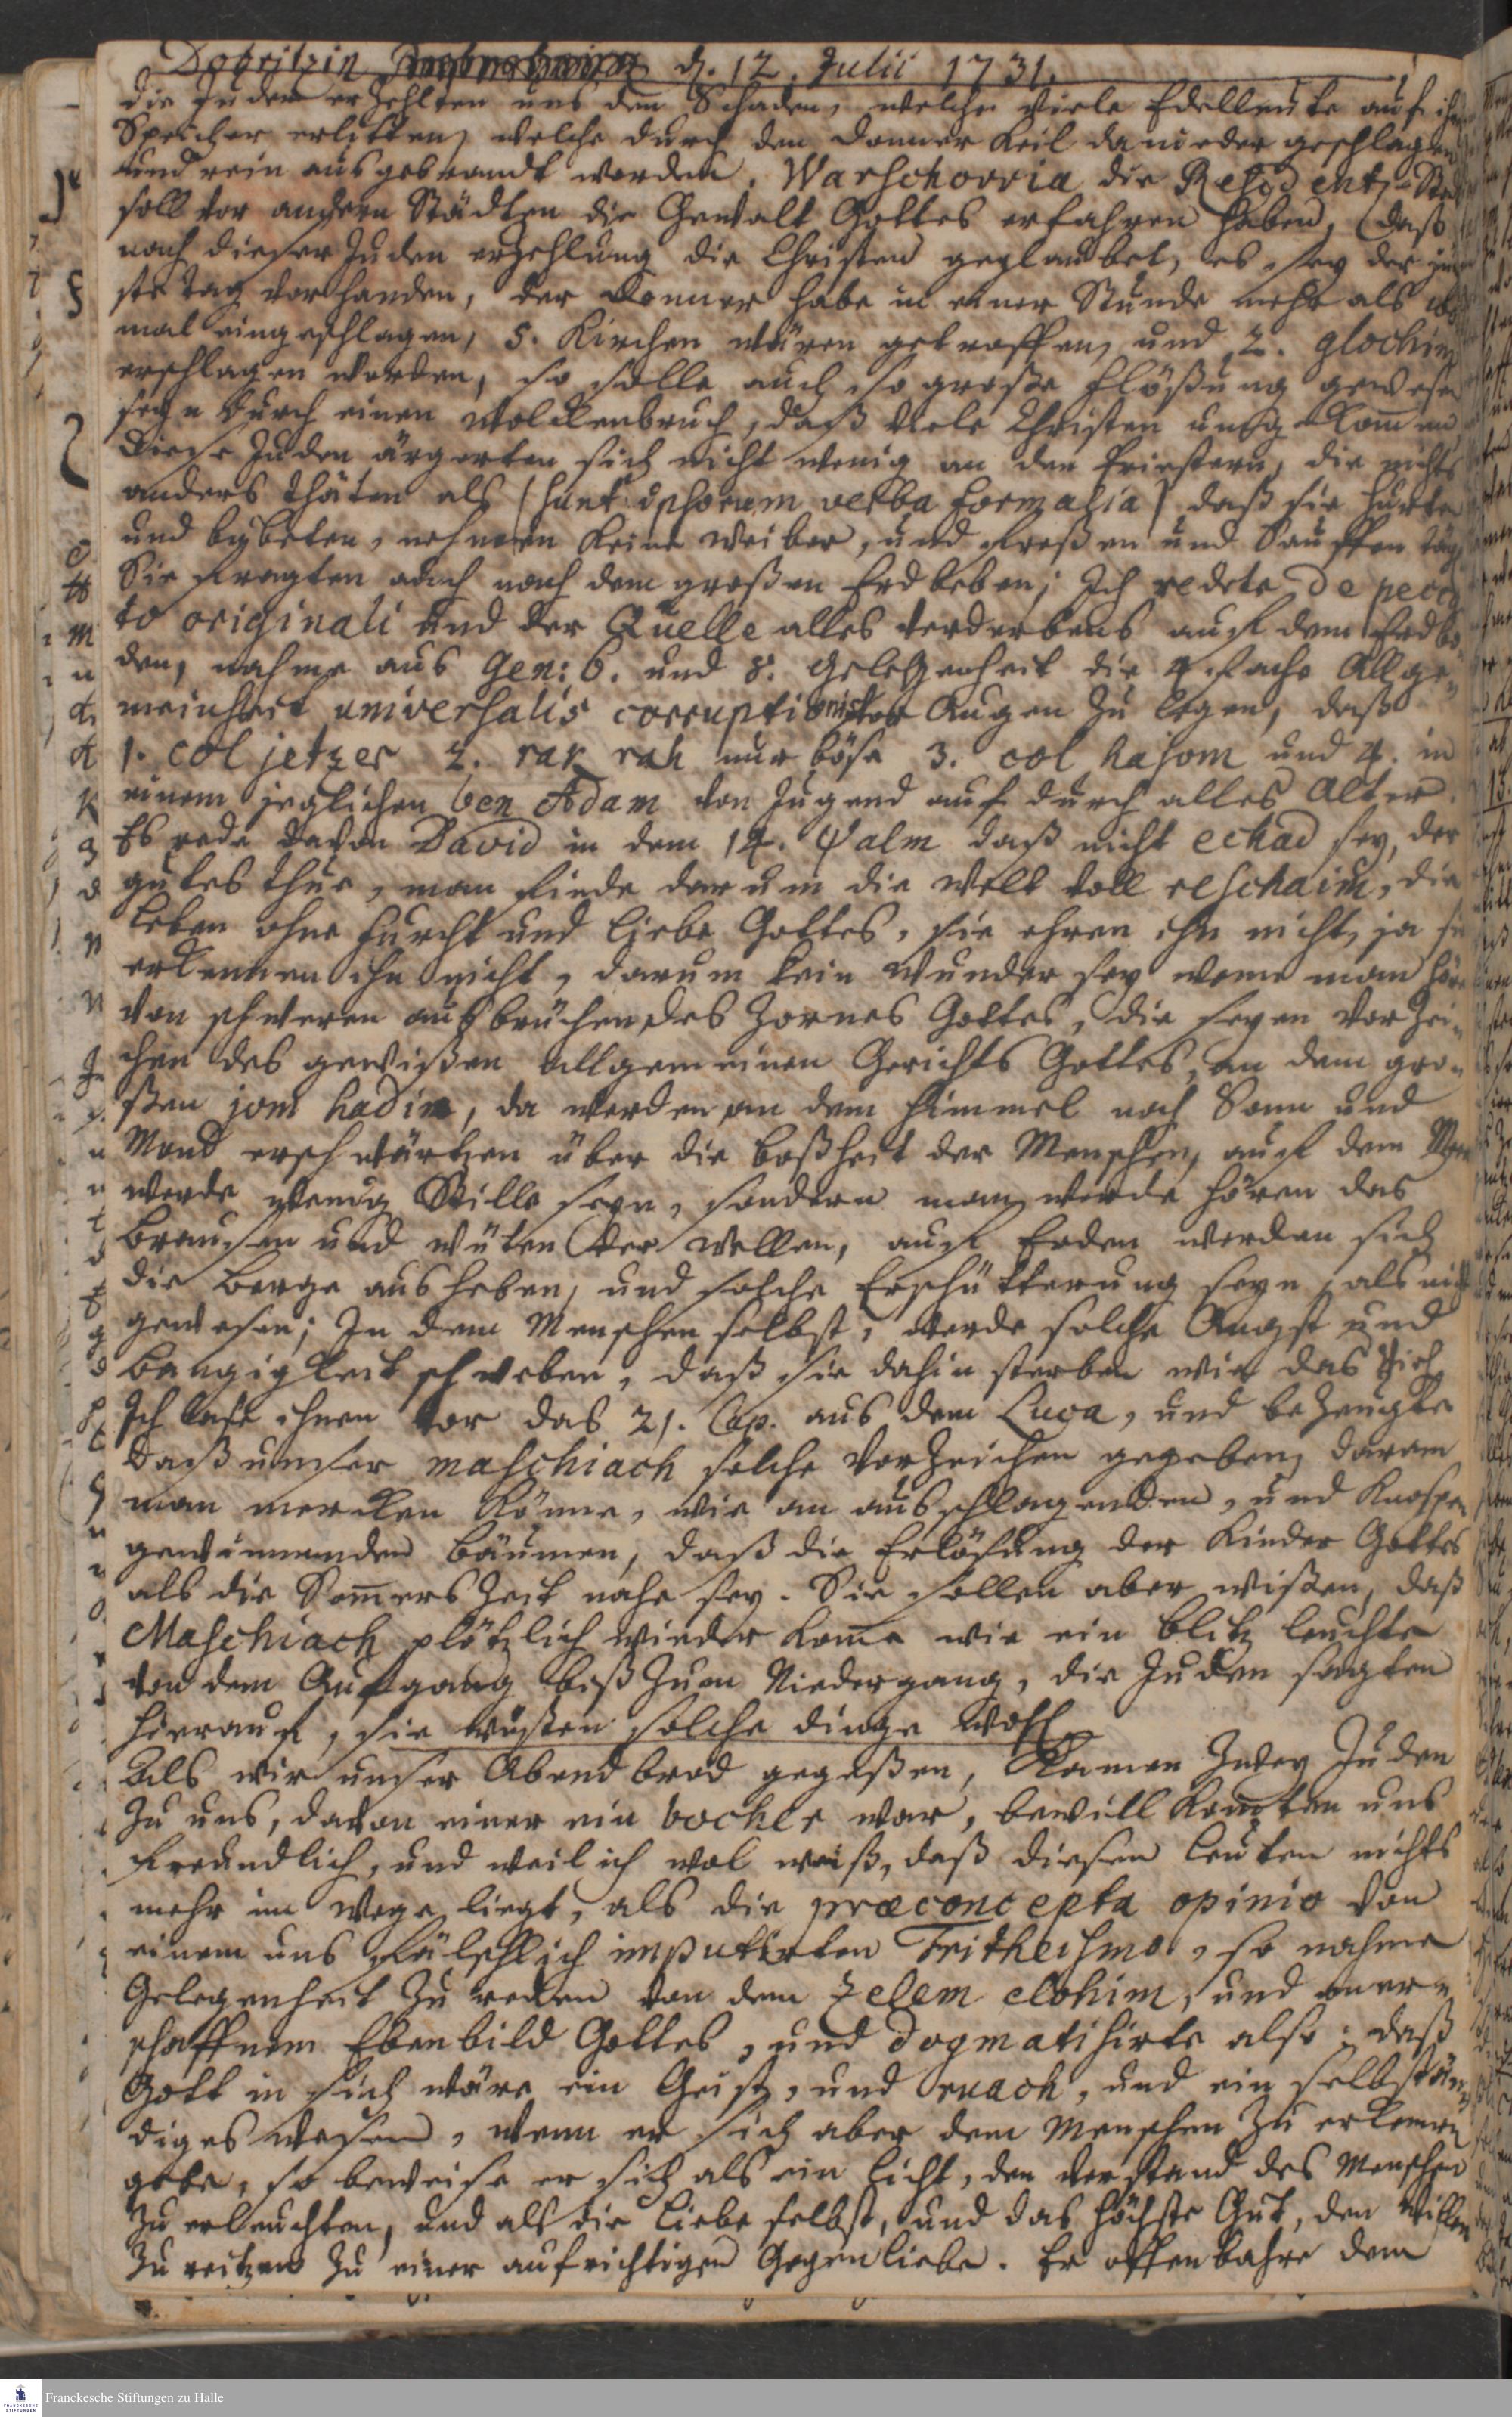 Dobritzin d. 12. Julii 1731.
die Juden erzehlten uns den Schaden, welche viele Edelleute auf
Speicher erlitten, welche durch den Donner Keil danieder geschlagen
und rein ausgebrandt worden. Warschovvia die Residentz-
soll vor andern Städten die Gewalt Gottes erfahren haben, daß
nach dieser Juden erzehlung die Christen geglaubet, es sey der
ste tag vorhanden, der Donner habe in einer Stunde mehr als
mal eingeschlagen, 5. Kirchen wären getroffen, und 2.
erschlagen worden, so solle auch so große Flößung gewesen
seyn durch einen Wolckenbruch, daß viele Christen umgekommen
Diese Juden ärgerten sich nicht wenig an den Priestern, die nichts
anders thäten als (sunt ipsorum verba formalia) daß sie hurten
und bubeten, nehmen keine Weiber, und freßen und Sauffen
Sie fragten auch nach dem großen Erdbeben; Ich redete de pecca
to originali und der Quelle alles Verderbens auf dem Erdbo
den, nahme aus Gen: 6. und 8. Gelegenheit die 4fache Allge-
meinheit universalis corruptionis vor Augen zu legen, daß
1. col jetzer 2. rak rah nur böse 3. col hajom und 4. in
einem jeglichen ben Adam von Jugend auf durch alles Alter.
Es rede davon David in dem 14. Psalm daß nicht echad sey, der
gutes thue, man finde darum die Welt voll reschaim, die
leben ohne Furcht und Liebe Gottes, sie ehren ihn nicht, ja sie
erkennen ihn nicht, darum kein Wunder sey wenn man höre
von schweren ausbrüchen des Zornes Gottes, die seyen Vorzei-
chen des gewißen allgemeinen Gerichts Gottes, an dem gro-
ßen jom hadin, da werden an dem Himmel noch Sonn und
Mond erschwärtzen über die Boßheit der Menschen, auf dem Meer
werde wenig Stille seyn, sondern man werde hören das
Brausen und wüten der Wellen, auf Erden werden sich
die Berge ausheben, und solche Erschütterung seyn, als nie
gewesen; In dem Menschen selbst, werde solche Angst und
Bangigkeit schweben, daß sie dahin sterben wie das Vieh,
Ich lase ihnen vor das 21. Cap. aus dem Luca, und bezeugte
daß unser maschiach solche Vorzeichen gegeben, daran
man mercken könne, wie an ausschlagenden, und Knospen
gewinnenden Bäumen, daß die Erlösung der Kinder Gottes
als die Sommers Zeit nahe sey. Sie sollen aber wißen, daß
Maschiach plötzlich wieder komme wie ein Blitz leuchte
von dem Aufgang biß zum Niedergang, die Juden sagten
hierauf, sie wüsten solche dinge wohl.
Als wir unser Abendbrod gegeßen, kamen zwey Juden
zu uns, davon einer ein bocher war, bewillkomten uns
freundlich, und weil ich wol weiß, daß diesen Leuten nichts
mehr im Wege liegt, als die præconcepta opinio von
einem uns fälschlich imputirten Tritheismo, so nahme
Gelegenheit zu reden von dem zelem elohim, und
schaffnem Ebenbild Gottes, und dogmatisirte also: daß
Gott in sich wäre ein Geist, und ruach, und ein selbstän-
diges Wesen, wenn er sich aber dem Menschen zu erkennen
gebe, so beweise er sich als ein Licht, den Verstand des Menschen
zu erleuchten, und als die Liebe selbst, und das höchste Gut, den Willen
zu reitzen zu einer aufrichtigen Gegenliebe. Er offenbahre dem
Franckesche Stiftungen zu Halle